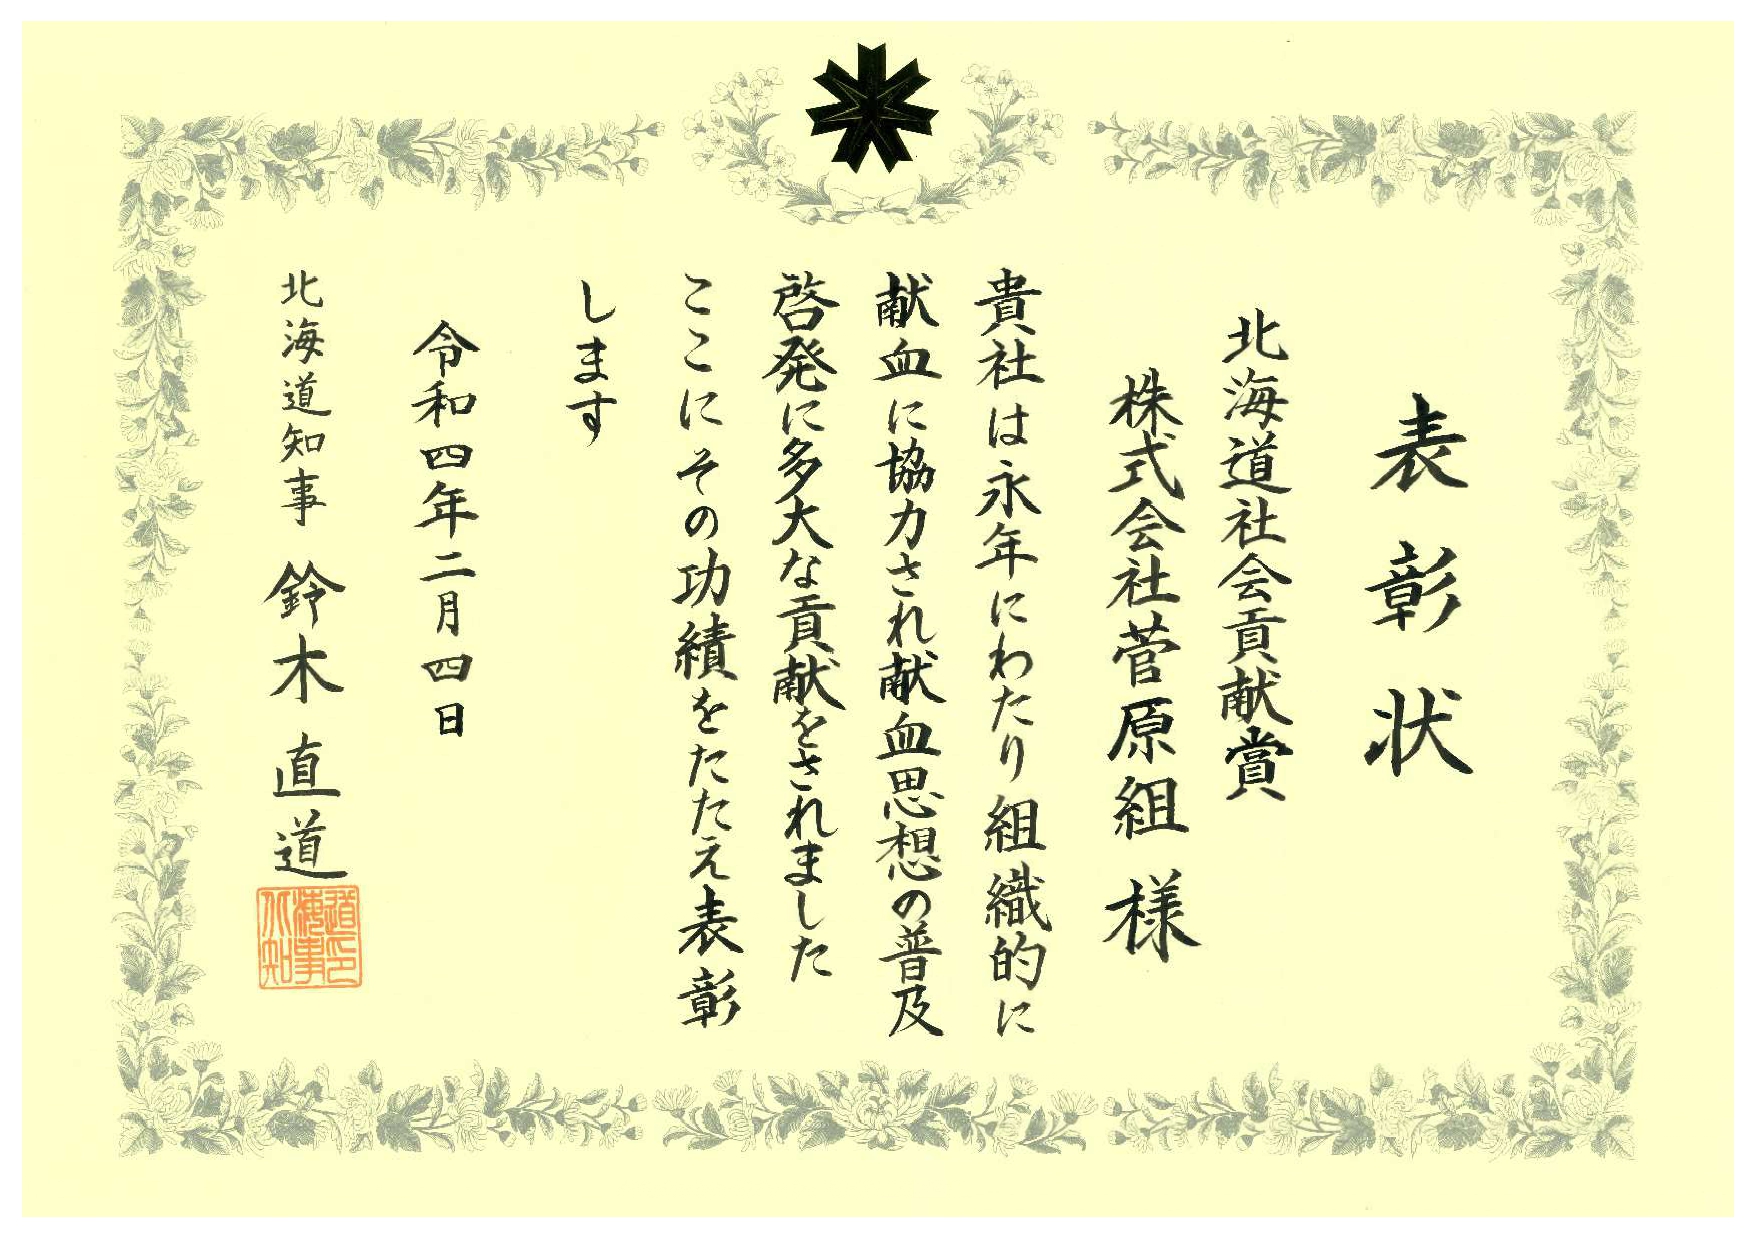 表彰状
北海道社会貢献賞
株式会社菅原組様
貴社は永年にわたり組織的に
献血に協力され献血思想の普及
啓発に多大な貢献をされました
ここにその功績をたたえ表彰
します
令和四年二月四日
北海道知事 鈴木直道
北海道知事印